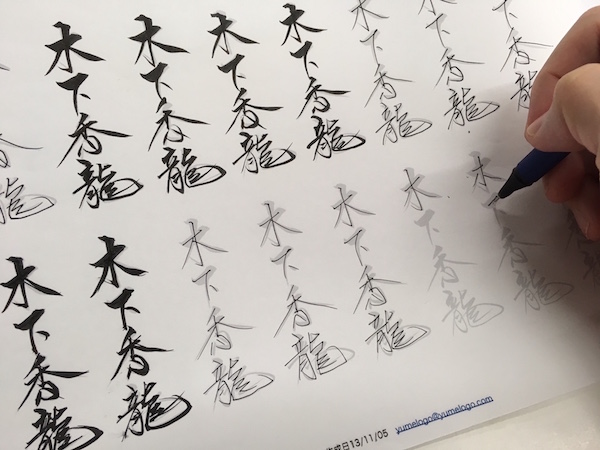 木下香龍
木下香龍
木下香龍
木下香龍
木下香龍
木下香龍
木下香龍
木下香龍
木下香龍
木下香龍
木下香龍
木下香龍
木下香龍
木下香龍
作成日13/11/05 yumelogo@yumelogo.com